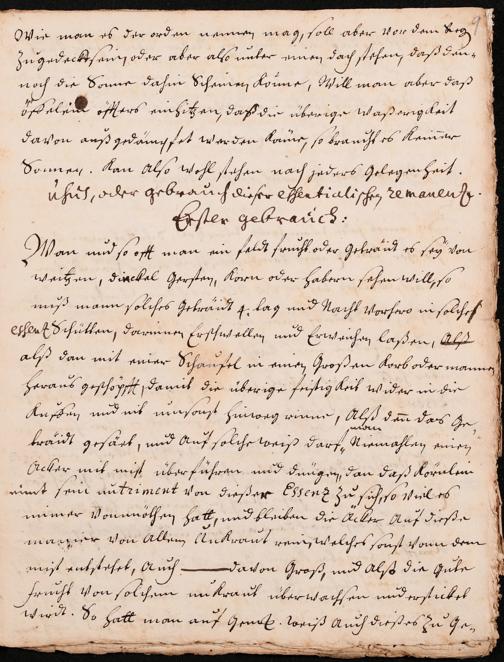 Wie man es der orden nennen mag, soll aber vor dem Reg
Zugedeckt sein, oder aber also unter einen dach stehen, daß den-
noch die Sonne dahin Scheinen Könne, Will man aber daß
öffters einhitzen, daß die überige Waßerigkeit
davon auß gedämpffet werden Köne, so braucht es Keiner
Sonnen. Kan also wohl stehen nach jeders Gelegenheit.
Uhus, oder gebrauch dieser essentialischen remanentz.
Erster gebrauch:
Wan nud so offt man ein feld frucht oder Getraid es sey von
weitzen, dinckel Gersten, Korn oder habern sehen will, so
muß mann solches Getraidt 4. tag und Nacht vorhero in solches
essentz Schütten, darinnen Erschwellen und Erweichen laßen,
alß dan mit einer Schaufel in einen Großen Korb oder mannen
heraus geschöpfft, damit die überige feistigkeit wider in die
Kuffen und nit umsonst hinweg rinne, Alß den das Ge-
traidt gesäet, und Auf solche weiß darf man Niemahlen einen
Acker mit mist überführen und düngen, dan daß Körnlein
nimt sein nutriment von dießer Essenz zu sich, so viel es
immer vonnöthen hatt, und bleiben die Äcker Auf dieße
manier von Allem Unkraut rein, welches sonst vom dem
mist entstehet, Auch davon Groß, und Alß die gute
frucht von solchem unkraut überwachsen und ersticket
wirdt. So hatt man auf Gemt. weiß Auch dießes zu Ge-